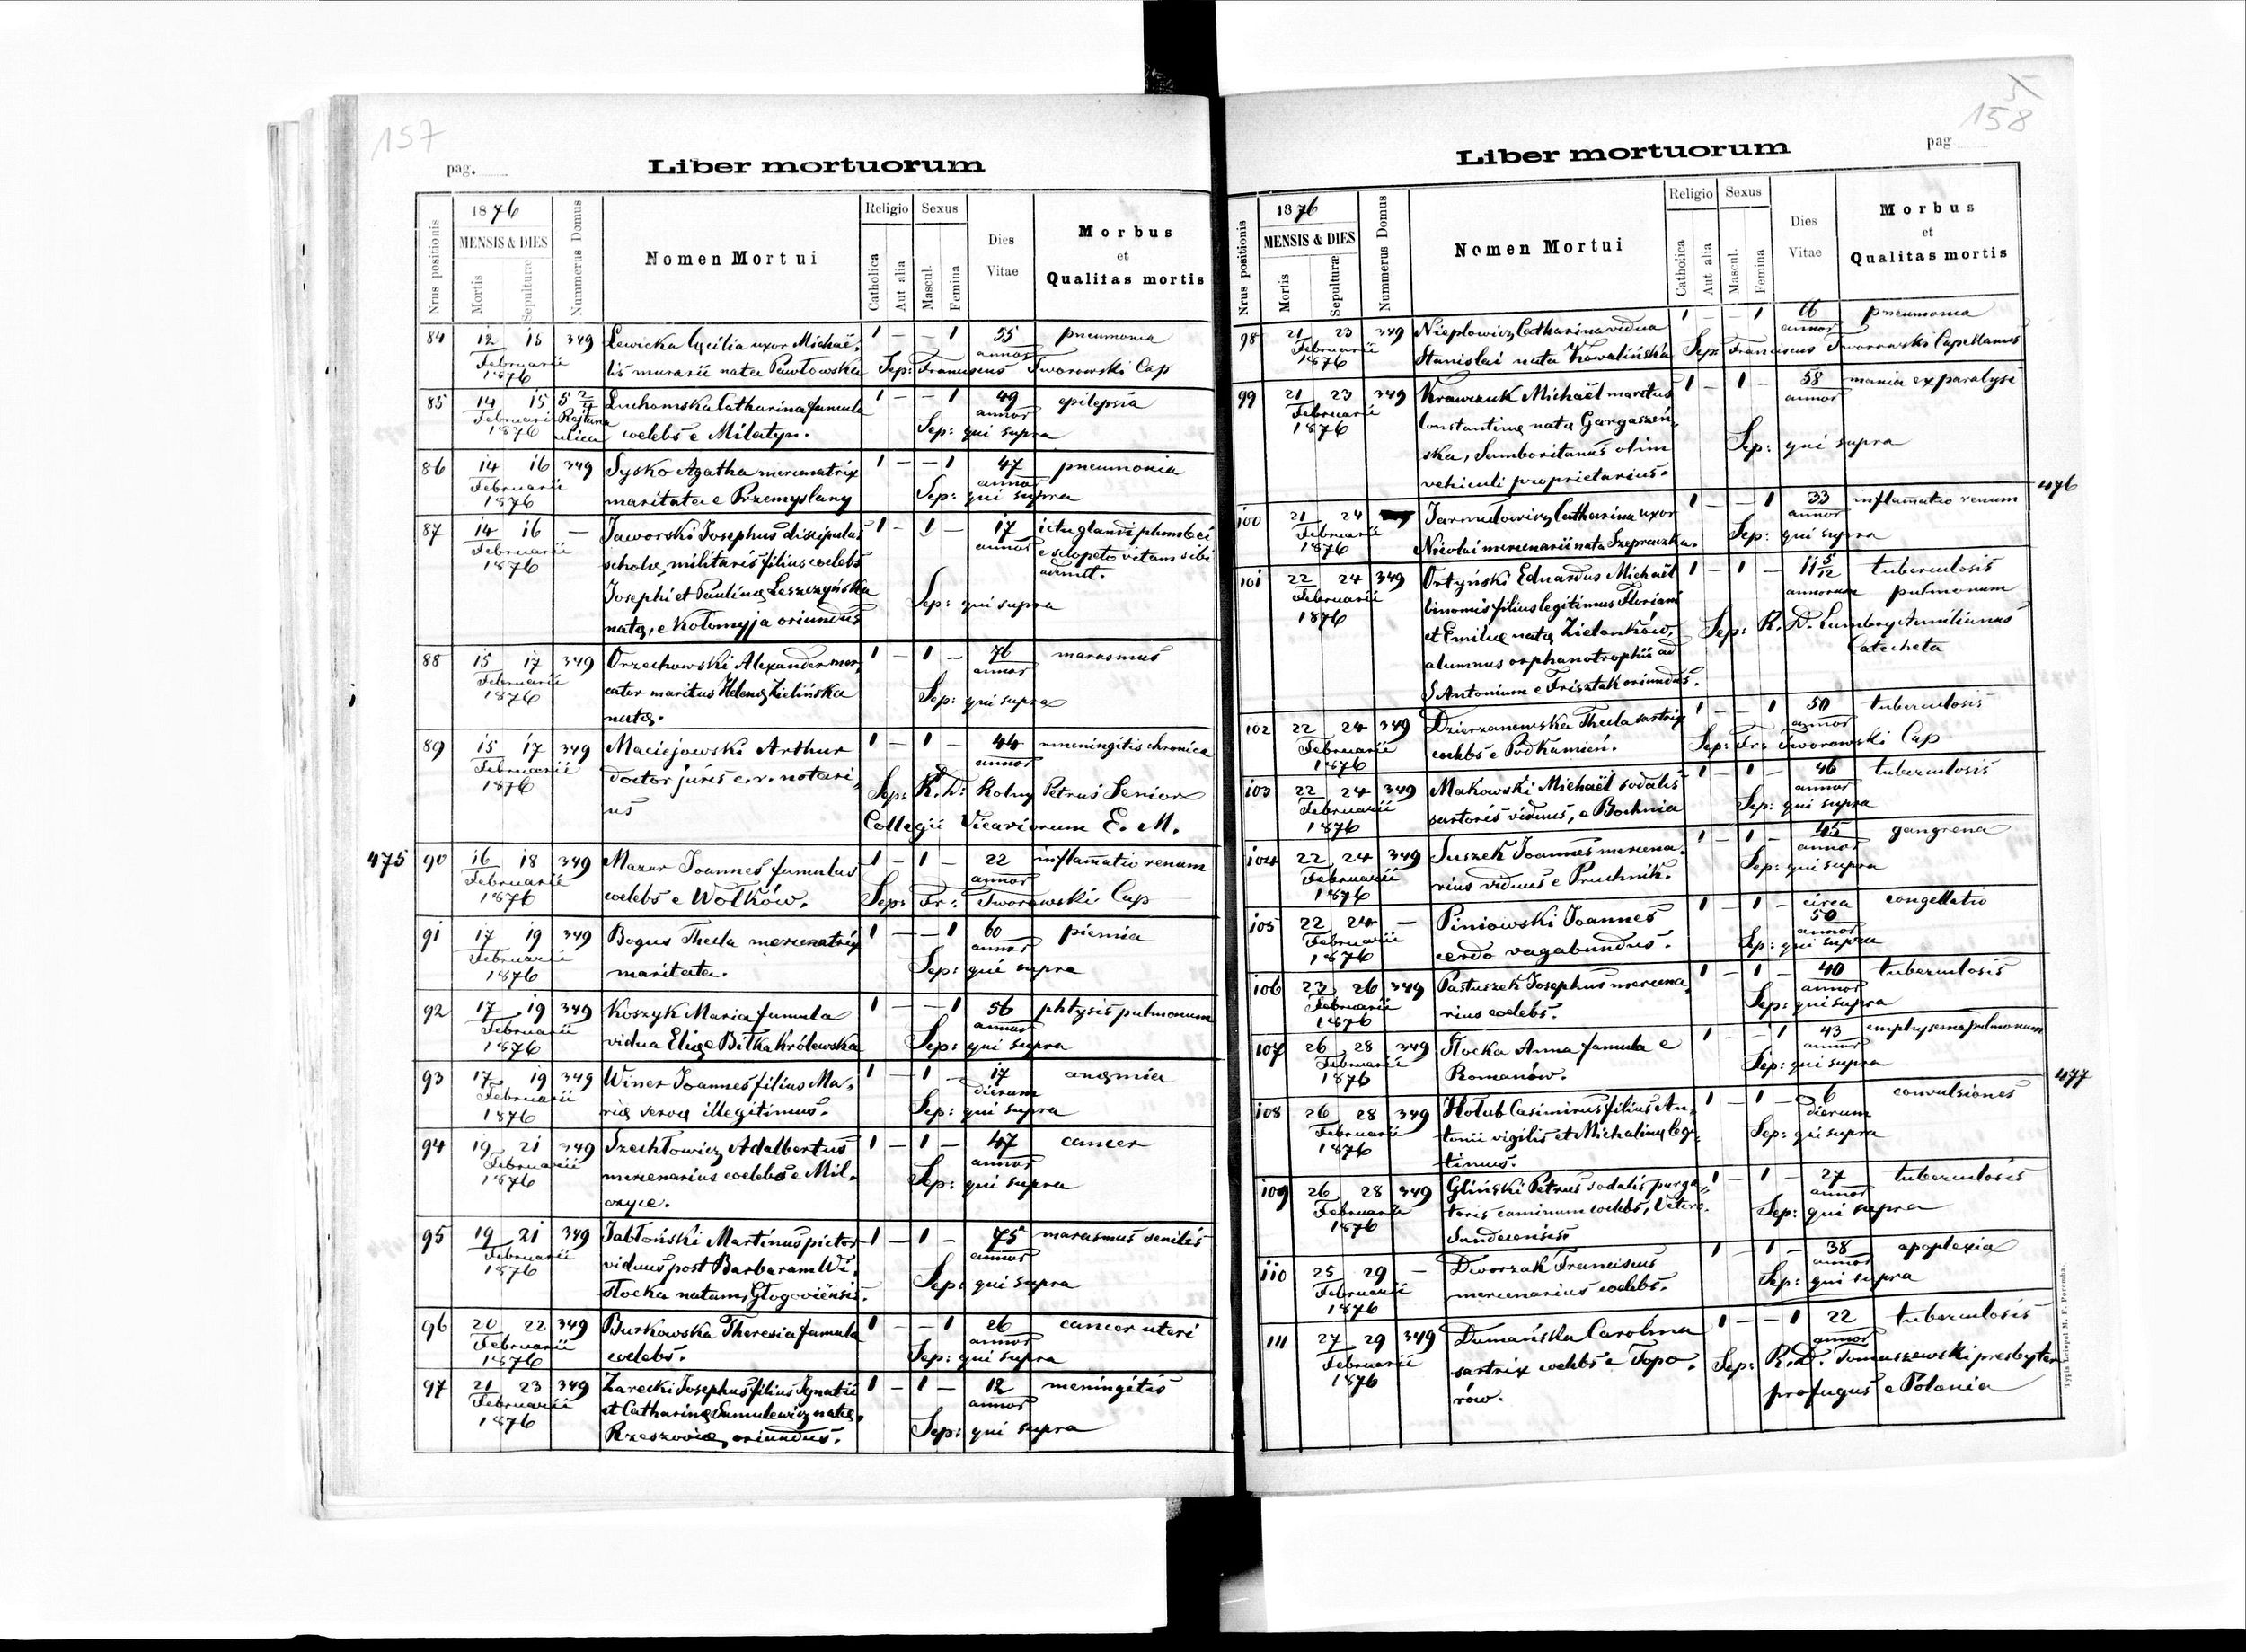 157
pag.
Liber mortuorum
1876
MENSIS & DIES
Mortis
Sepulturæ
Nrus positionis
Nummerus Domus
Nomen Mortui
Religio
Catholica
Aut alia
Sexus
Mascul.
Femina
Dies
Vitae
Morbus
et
Qualitas mortis
84 12 15 349 Lewicka Cæcilia uxor Michaë- 1 — — 1 55 pneumonia
Februarii annor
1876 lis murarii nata Pawłowska Sep: Franciscus Tworowski Cap
85 14 15 5 2/4 Luchomska Catharina famula 1 — — 1 49 epilepsia
Februarii Rejtana annor
1876 ulica coelebs e Milatyn. Sep: qui supra
86 14 16 349 Sysko Agatha mercenatrix 1 — — 1 47 pneumonia
Februarii annor
1876 maritata e Przemyslany Sep: qui supra
87 14 16 — Jaworski Josephus discipulus 1 — 1 — 17 ictu glandi plumbei
Februarii annor e sclopeto vitam sibi
1876 scholæ militaris filius coelebs ademit.
Josephi et Paulinæ Leszczyńska
Sep: qui supra
natæ, e Kołomyja oriundus
88 15 17 349 Orzechowski Alexander mer- 1 — 1 — 76 marasmus
Februarii annor
1876 cator maritus Helenæ Zielińska
Sep: qui supra
natæ.
89 15 17 349 Maciejowski Arthur 1 — 1 — 44 meningitis chronica
Februarii annor
1876 doctor juris c. r. notari-
us Sep: R. D: Kolny Petrus Senior
Collegii Vicariorum E. M.
475 90 16 18 349 Mazur Joannes famulus 1 — 1 — 22 inflamatio renum
Februarii annor
1876 coelebs e Wołków. Sep: Fr: Tworowski Cap
91 17 19 349 Bogus Thecla mercenatrix 1 — — 1 60 piemia
Februarii annor
1876 maritata. Sep: qui supra
92 17 19 349 Koszyk Maria famula 1 — — 1 56 phtysis pulmonum
Februarii annor
1876 vidua Eliæ e Biłka Królewska Sep: qui supra
93 17 19 349 Winer Joannes filius Ma- 1 — 1 — 17 anæmia
Februarii dierum
1876 riæ servæ illegitimus. Sep: qui supra
94 19 21 349 Szechłowicz Adalbertus 1 — 1 — 47 cancer
Februarii annor
1876 mercenarius coelebs e Mil- Sep: qui supra
czyce.
95 19 21 349 Jabłoński Martinus pictor 1 — 1 — 75 marasmus senilis
Februarii annor
1876 viduus post Barbaram Wi-
Sep: qui supra
słocka natam, Głogoviensis.
96 20 22 349 Burkowska Theresia famula 1 — — 1 26 cancer uteri
Februarii annor
1876 coelebs. Sep: qui supra
97 21 23 349 Zarecki Josephus filius Ignatii 1 — 1 — 12 meningitis
Februarii annor
1876 et Catharinæ Samulewicz natæ,
Rzeszoviæ oriundus. Sep: qui supra
158
pag
Liber mortuorum
1876
MENSIS & DIES
Mortis
Sepulturæ
Nrus positionis
Nummerus Domus
Nomen Mortui
Religio
Catholica
Aut alia
Sexus
Mascul.
Femina
Dies
Vitae
Morbus
et
Qualitas mortis
98 21 23 349 Nieplowicz Catharina vidua 1 — — 1 66 pneumonia
Februarii annor
1876 Stanislai nata Kowalińska Sep: Franciscus Tworowski Capellanus
99 21 23 349 Krawczuk Michaël maritus 1 — 1 — 58 mania ex paralysi
Februarii annor
1876 Constantinæ natæ Gargaszeń-
ska, Samboritanus olim Sep: qui supra
vehiculi proprietarius.
476
100 21 24 Jarmułowicz Catharina uxor 1 — — 1 33 inflamatio renum
Februarii annor
1876 Nicolai mercenarii nata Szepraczka. Sep: qui supra
101 22 24 349 Ortyński Eduardus Michaël 1 — 1 — 11 5/12 tuberculosis
Februarii annorum pulmonum
1876 binomis filius legitimus Floriani
et Emiliæ natæ Zielonków, Sep: R. D. Aemilianus
alumnus orphanotrophii ad Catecheta
S Antonium e Frisztak oriundus.
102 22 24 349 Dzierzanowska Thecla sartrix 1 — — 1 50 tuberculosis
Februarii annor
1876 coelebs e Podkamień. Sep: Fr: Tworowski Cap
103 22 24 349 Makowski Michaël sodalis 1 — 1 — 46 tuberculosis
Februarii annor
1876 sartoris viduus, e Bochnia Sep: qui supra
104 22 24 349 Suszek Joannes mercena- 1 — 1 — 45 gangrena
Februarii annor
1876 rius viduus e Pruchnik. Sep: qui supra
105 22 24 — Piniowski Joannes 1 — 1 — circa 50 congellatio
Februarii annor
1876 cerdo vagabundus. Sep: qui supra
106 23 26 349 Pastuszek Josephus mercena- 1 — 1 — 40 tuberculosis
Februarii annor
1876 rius coelebs. Sep: qui supra
107 26 28 349 Słocka Anna famula e 1 — — 1 43 emphysema pulmonum
Februarii annor
1876 Romanów. Sep: qui supra
477
108 26 28 349 Hołub Casimirus filius An- 1 — 1 — 6 convulsiones
Februarii dierum
1876 tonii vigilis et Michalinæ legi- Sep: qui supra
timus.
109 26 28 349 Gliński Petrus sodalis purga- 1 — 1 — 27 tuberculosis
Februarii annor
1876 toris caminum coelebs, Vetero- Sep: qui supra
Sandecensis.
110 25 29 — Dworzak Franciscus 1 — 1 — 38 apoplexia
Februarii annor
1876 mercenarius coelebs. Sep: qui supra
111 27 29 349 Dumańska Carolina 1 — — 1 22 tuberculosis
Februarii annor
1876 sartrix coelebs e Topo- Sep: R. D. Tomaszewski presbyter
rów. profugus e Polonia
Typis Leopol M. F. Poremba.